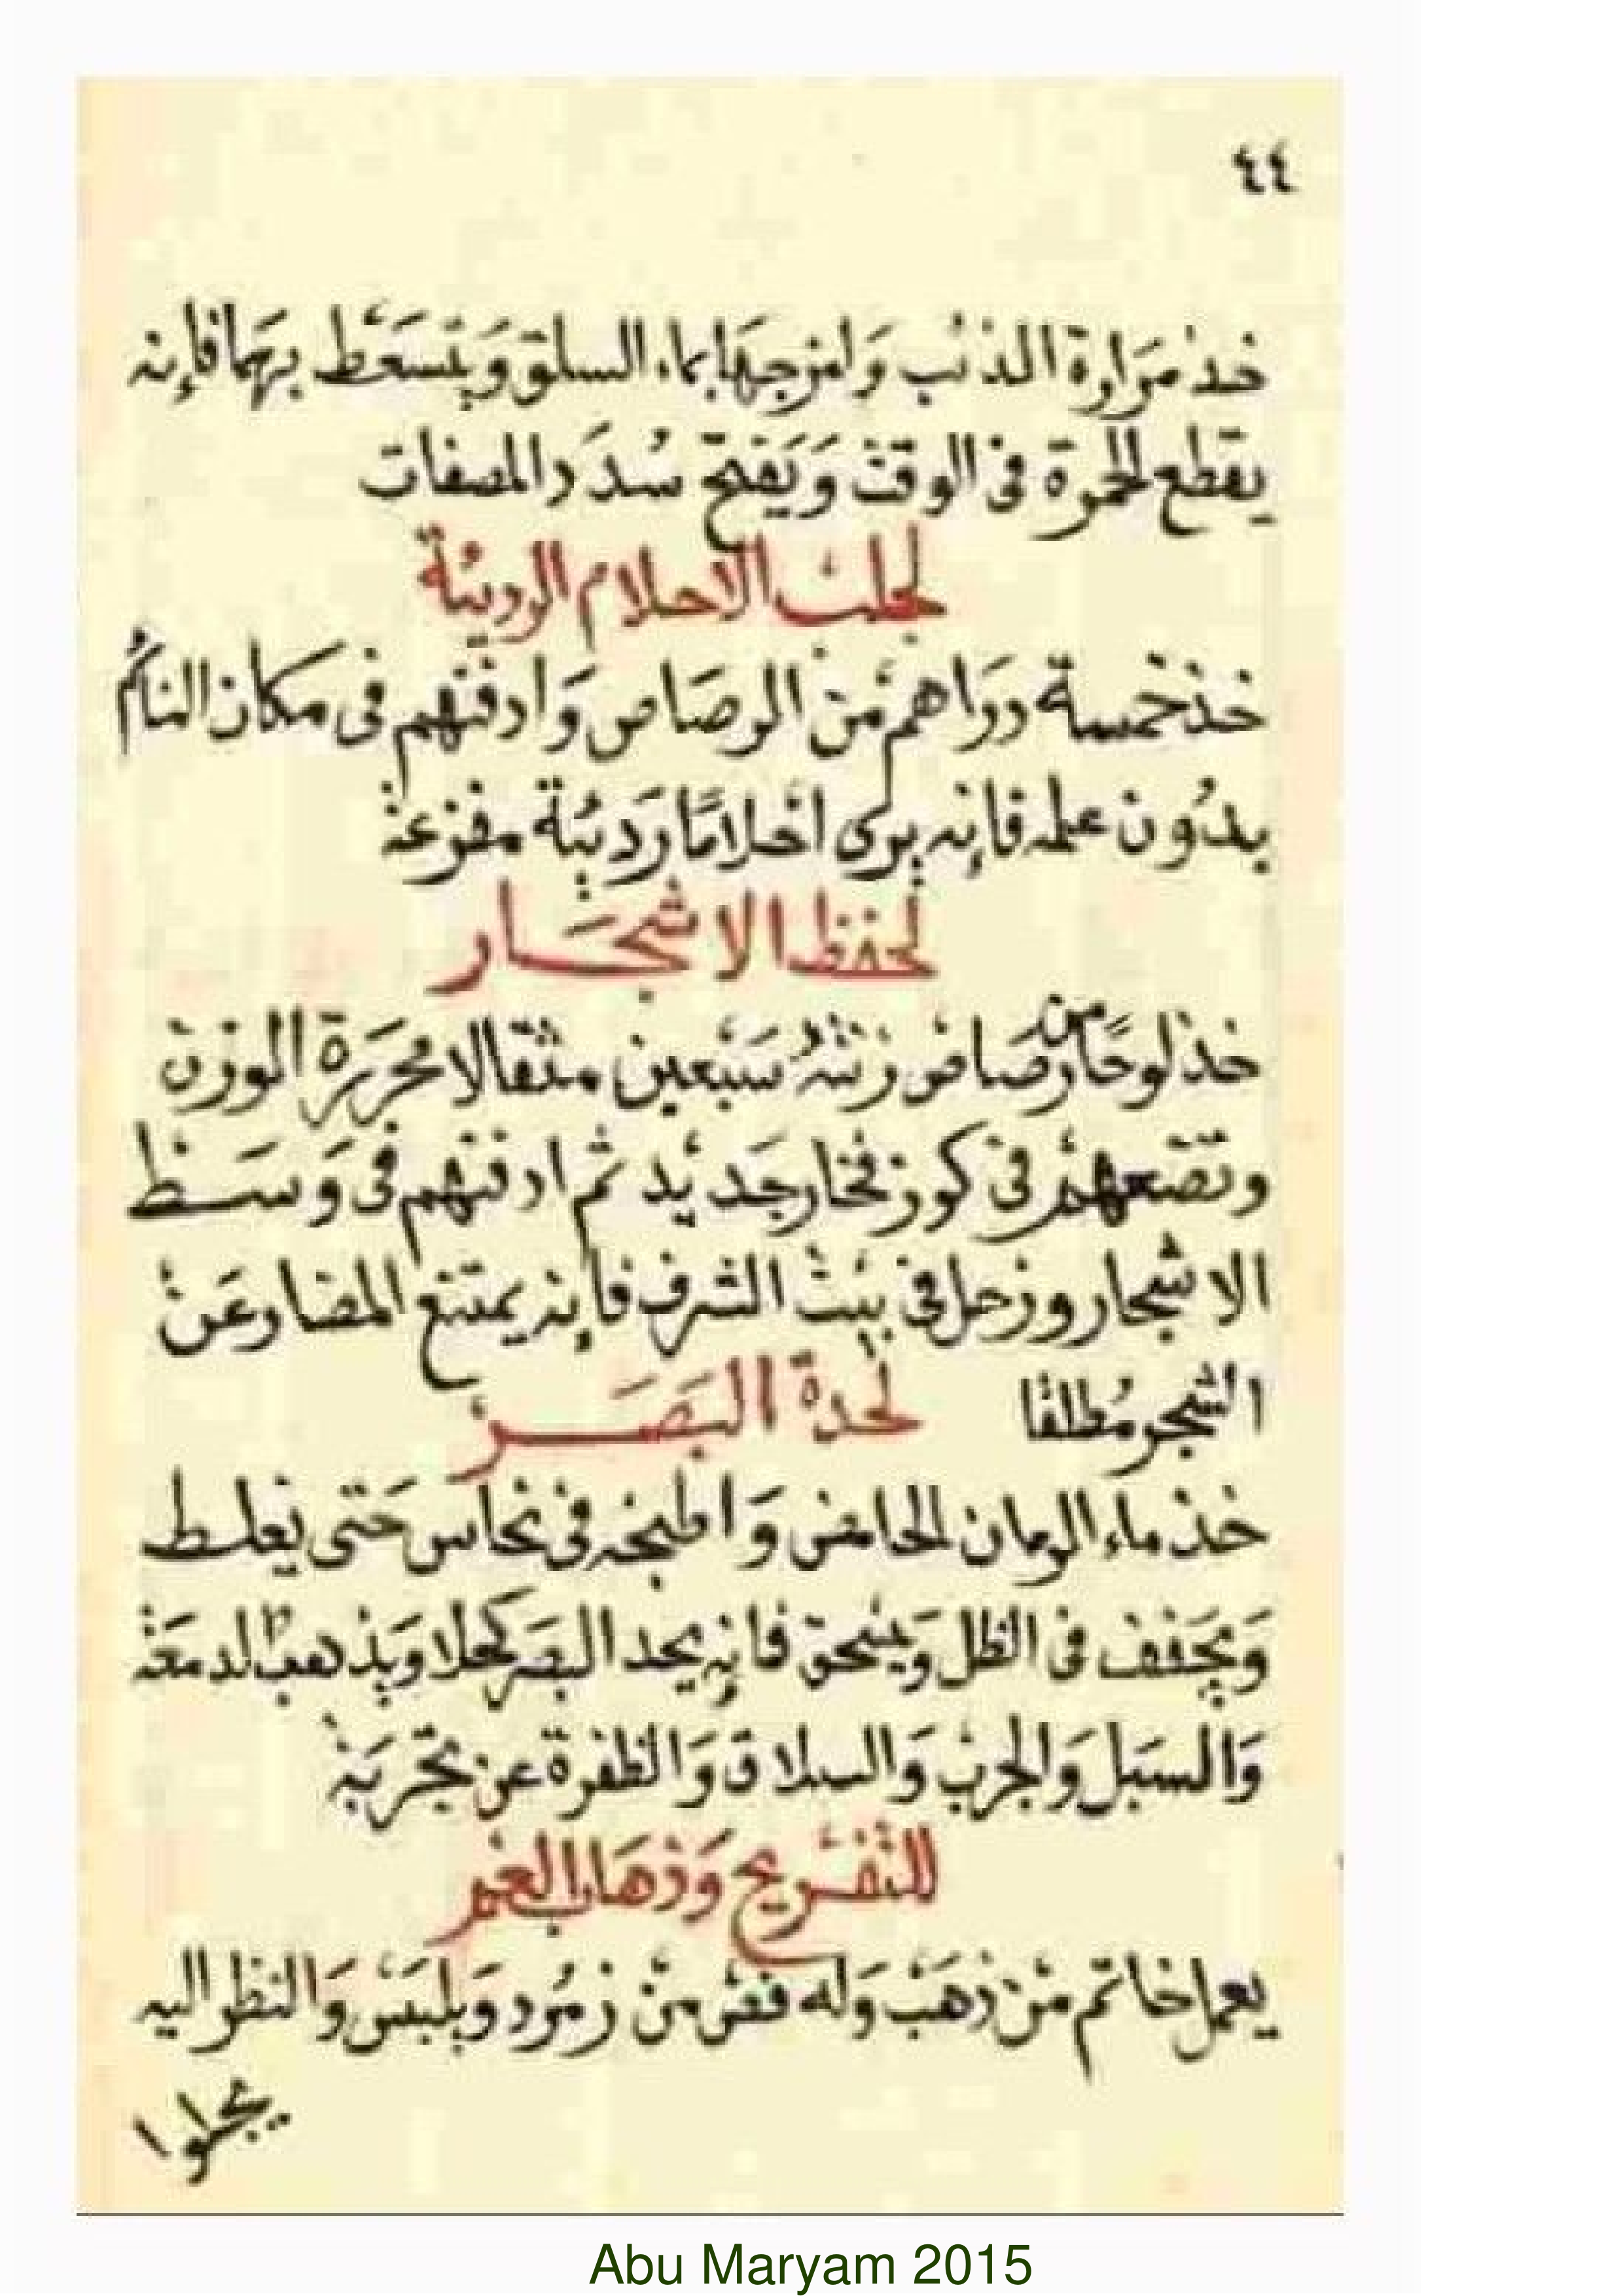 ٤٤
خذ مَرَارة الذئب وَامزجهَا بماء السلق وَيتسَعَط بهَا فإنه
يقطع الحمرة فى الوقت وَيَفتح سُدَد المصفات
لجلب الاحلام الرديئة
خذ خمسة دراهم من الرصَاص وَادفنهم فى مكان النائم
بدُون علمه فإنه يرى احْلامًا رَديئة مفزعة
لحفظ الاشجَار
خذ لوحًا من رصَاص زنتهُ سَبْعين مثقالا محررَة الوزن
وتضعهم فى كوز فخار جَديْد ثم ادفنهم فى وَسَط
الاشجار وزحل فى بيت الشرف فإنه يمتنع المضار عَن
الشجر مُطلقا
لحدة البَصَر
خذ ماء الرمان الحامض وَاطبخه فى نحاس حَتى يغلط
وَيجَفف فى الظل وَيسْحق فإنه يحد البصَر كحلا وَيذهب الدمعَة
وَالسَبَل وَالجرب وَالسلاق وَالظفرة عن تجربَة
للتفريح وَذهَاب الغم
يعمل خاتم من ذهَب وَله فص من زمُرد وَيلبَس وَالنظر اليه
يجلوا
Abu Maryam 2015